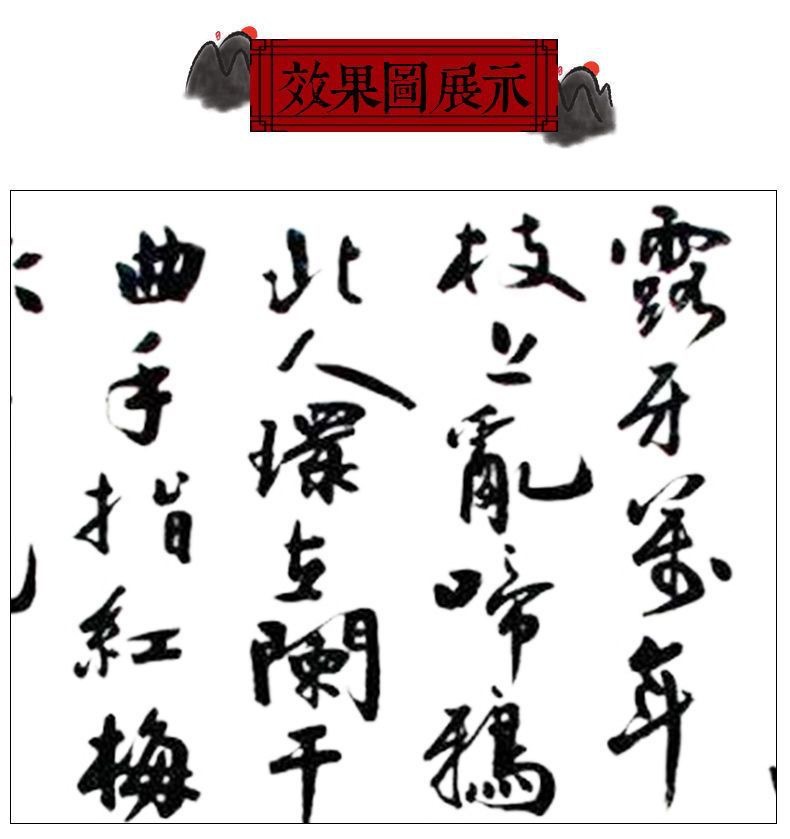 效果圖展示
露牙萬年
枝上亂啼鴉
此人環立闌干
曲手指紅梅